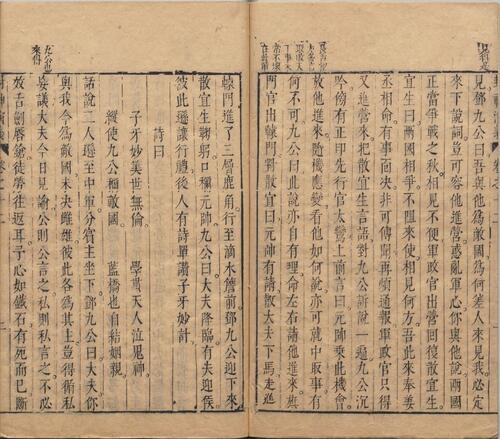 見鄧九公曰吾與他為敵國為何差人來見我必定
來下說詞豈可容他進營惑亂軍心你與他說兩國
正當爭戰之秋相見不便軍政官出營回復散宜生
宜生曰兩國相爭不阻來使相見何方吾此來奉姜
丞相命有事面決非可傳聞再煩通報軍政官只得
又進營來把散宜生言語對九公訴說一遍九公沉
吟傍有正印先行官太鸞上前言曰元帥乘此機會
放他進來隨機應變看他如何說亦可就中取事有
何不可九公曰此說亦自有理命左右請他進來旗
門官出轅門對散宜生曰元帥有請散大夫下馬走進
轅門進了三層鹿角行至滴水簷前鄧九公迎下來
散宜生鞠躬口稱元帥九公曰大夫降臨有失迎候
彼此遜讓行禮後人有詩單讚子牙妙計
詩曰
子牙妙筭世無倫　學貫天人泣鬼神
縱使九公稱敵國　藍橋也自結姻親
話說二人遜至中軍分賓主坐下鄧九公曰大夫你
與我今為敵國未決雌雄彼此各為其主豈得循私
妄議大夫今日見諭公則公言之私則私言之不必
效舌劍唇鎗徒勞往返耳予心如鐵石有死而已斷
九公也
來得